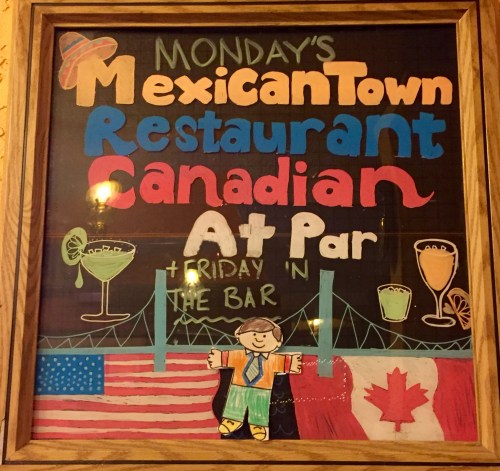 MONDAY'S
MexicanTown
Restaurant
Canadian
At Par
+ FRIDAY 'N
THE BAR